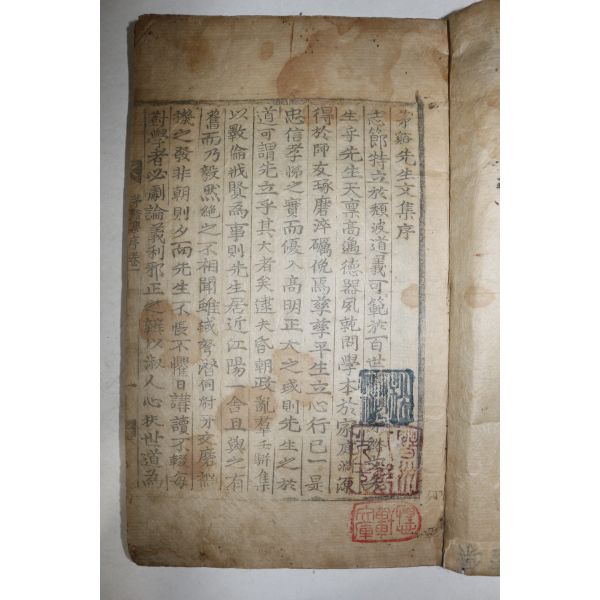 谿先生文集序
志節特立於頹波道義可範於百世
生乎先生天稟高邁德器夙乾問學本於家庭淵源
得於師友琢磨淬礪俛焉孶孶平生立心行已一是
忠信孝悌之實而優入高明正大之域則先生之於
道可謂先立乎其大者矣逮夫昏朝政亂羣壬騈集
以斁倫戕賢為事則先生居近江陽一舍且與之有
舊而乃毅然絶之不相聞雖鍼弩潛伺射牙交磨
機之發非朝則夕而先生不悵不懼日講讀不輟每
對學者必劇論義利邪正之辨以淑人心扶世道為
集序卷一